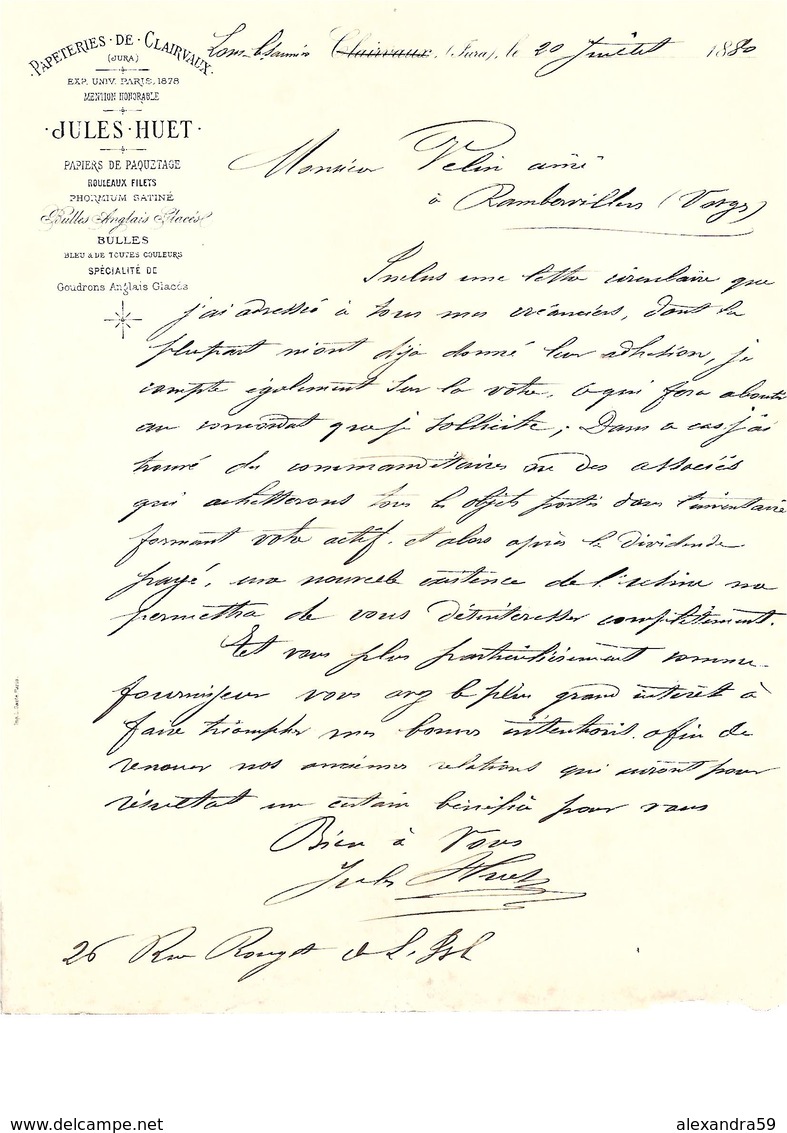 PAPETERIES · DE · CLAIRVAUX
(JURA)
EXP. UNIV. PARIS, 1878
MENTION HONORABLE
· JULES · HUET ·
PAPIERS DE PAQUETAGE
ROULEAUX FILETS
PHORMIUM SATINÉ
Bulles Anglais Glacés
BULLES
BLEU & DE TOUTES COULEURS
SPÉCIALITÉ DE
Goudrons Anglais Glacés
Lons-le-Saunier Clairvaux, (Jura), le 20 Juillet 1880
Monsieur Velin ainé
à Rambervillers (Vosges)
Inclus une lettre circulaire que
j'ai adressée à tous mes créanciers, dont la
plupart m'ont déja donné leur adhésion, je
compte également sur la votre, ce qui fera aboutir
au concordat que je sollicite; Dans ce cas, j'ai
trouvé des commanditaires ou des associés
qui achetterons tous les objets portés dans l'inventaire
formant votre actif. et alors après le dividende
payé, une nouvelle existence de l'usine me
permettra de vous désintéresser complètement.
Et vous plus particulièrement comme
fournisseur vous avez le plus grand intérêt à
faire triompher mes bonnes intentions. afin de
renouer nos anciennes relations qui auront pour
résultat un certain bénéfice pour vous
Bien à Vous
Jules Huet
26 Rue Rouget de L'Isle
www.delcampe.net
alexandra59